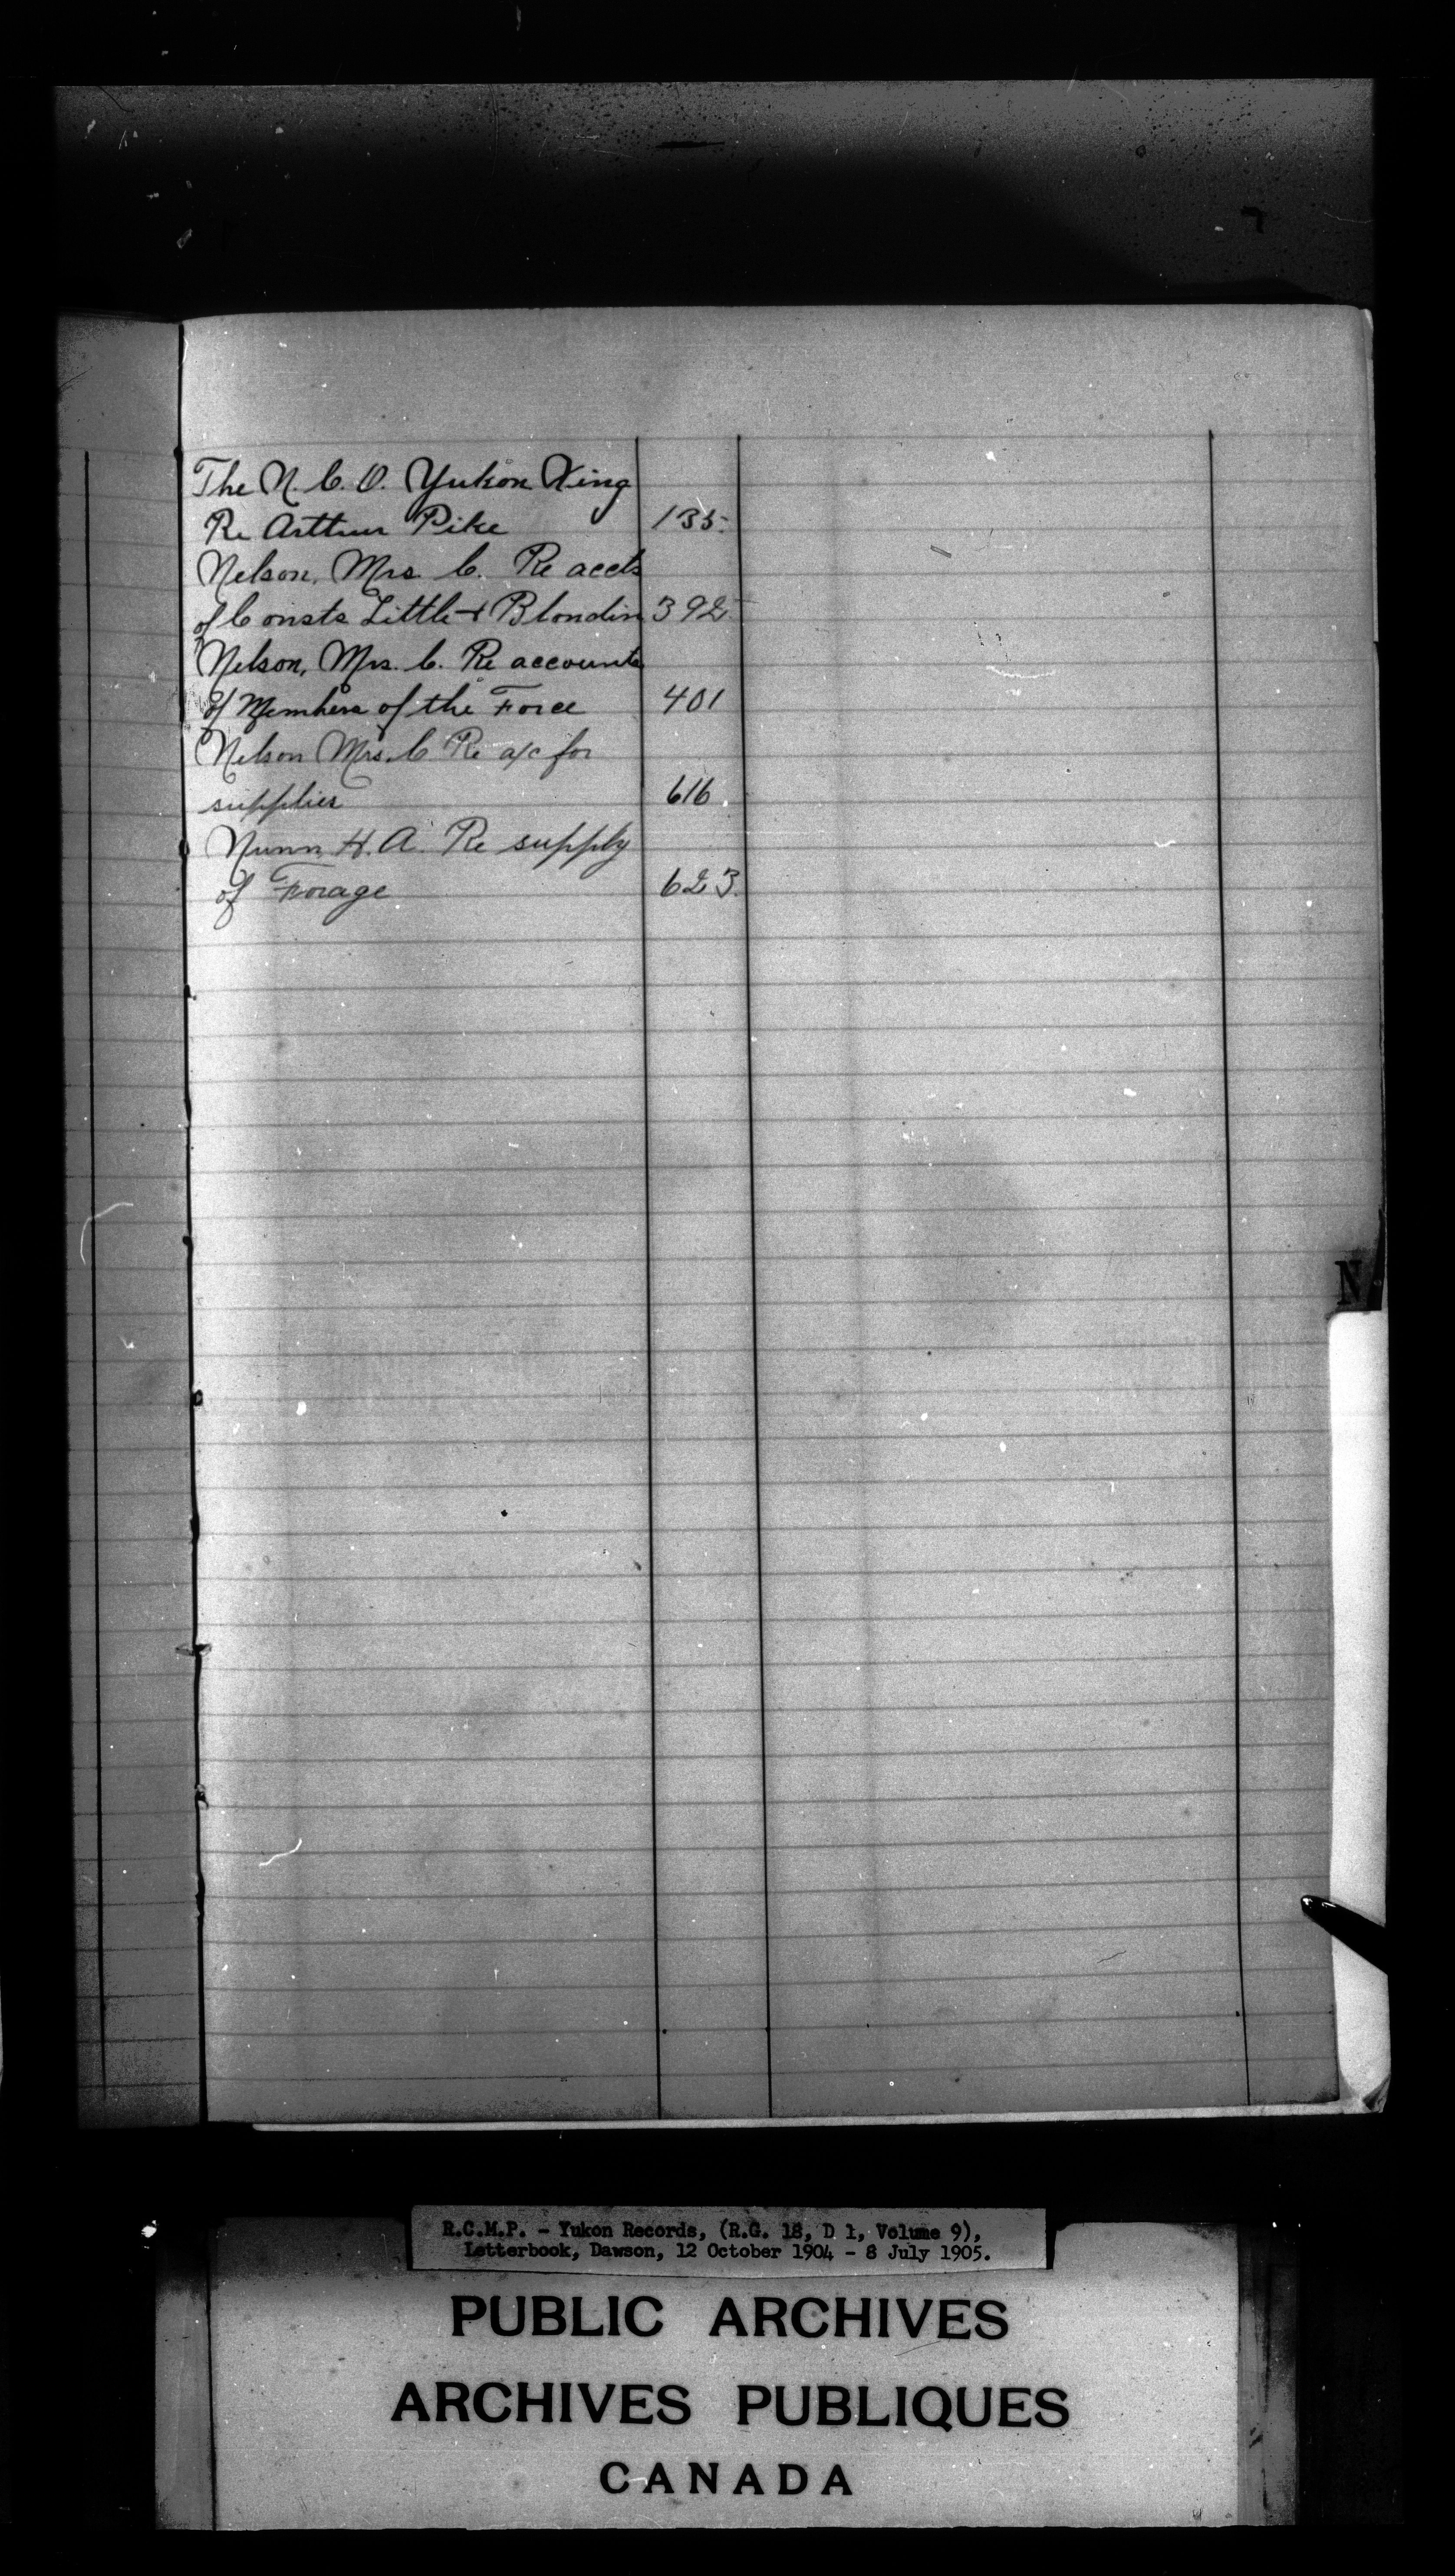 The N. C. O. Yukon Xing
Re Arthur Pike 135.
Nelson, Mrs. C. Re accts
of Consts Little + Blondin 392.
Nelson, Mrs. C. Re accounts
of Members of the Force 401
Nelson Mrs. C Re a/c for
supplies 616.
Nunn, H. A. Re supply
of Forage 623.
N
R.C.M.P. - Yukon Records, (R.G. 18, D 1, Volume 9),
Letterbook, Dawson, 12 October 1904 - 8 July 1905.
PUBLIC ARCHIVES
ARCHIVES PUBLIQUES
CANADA